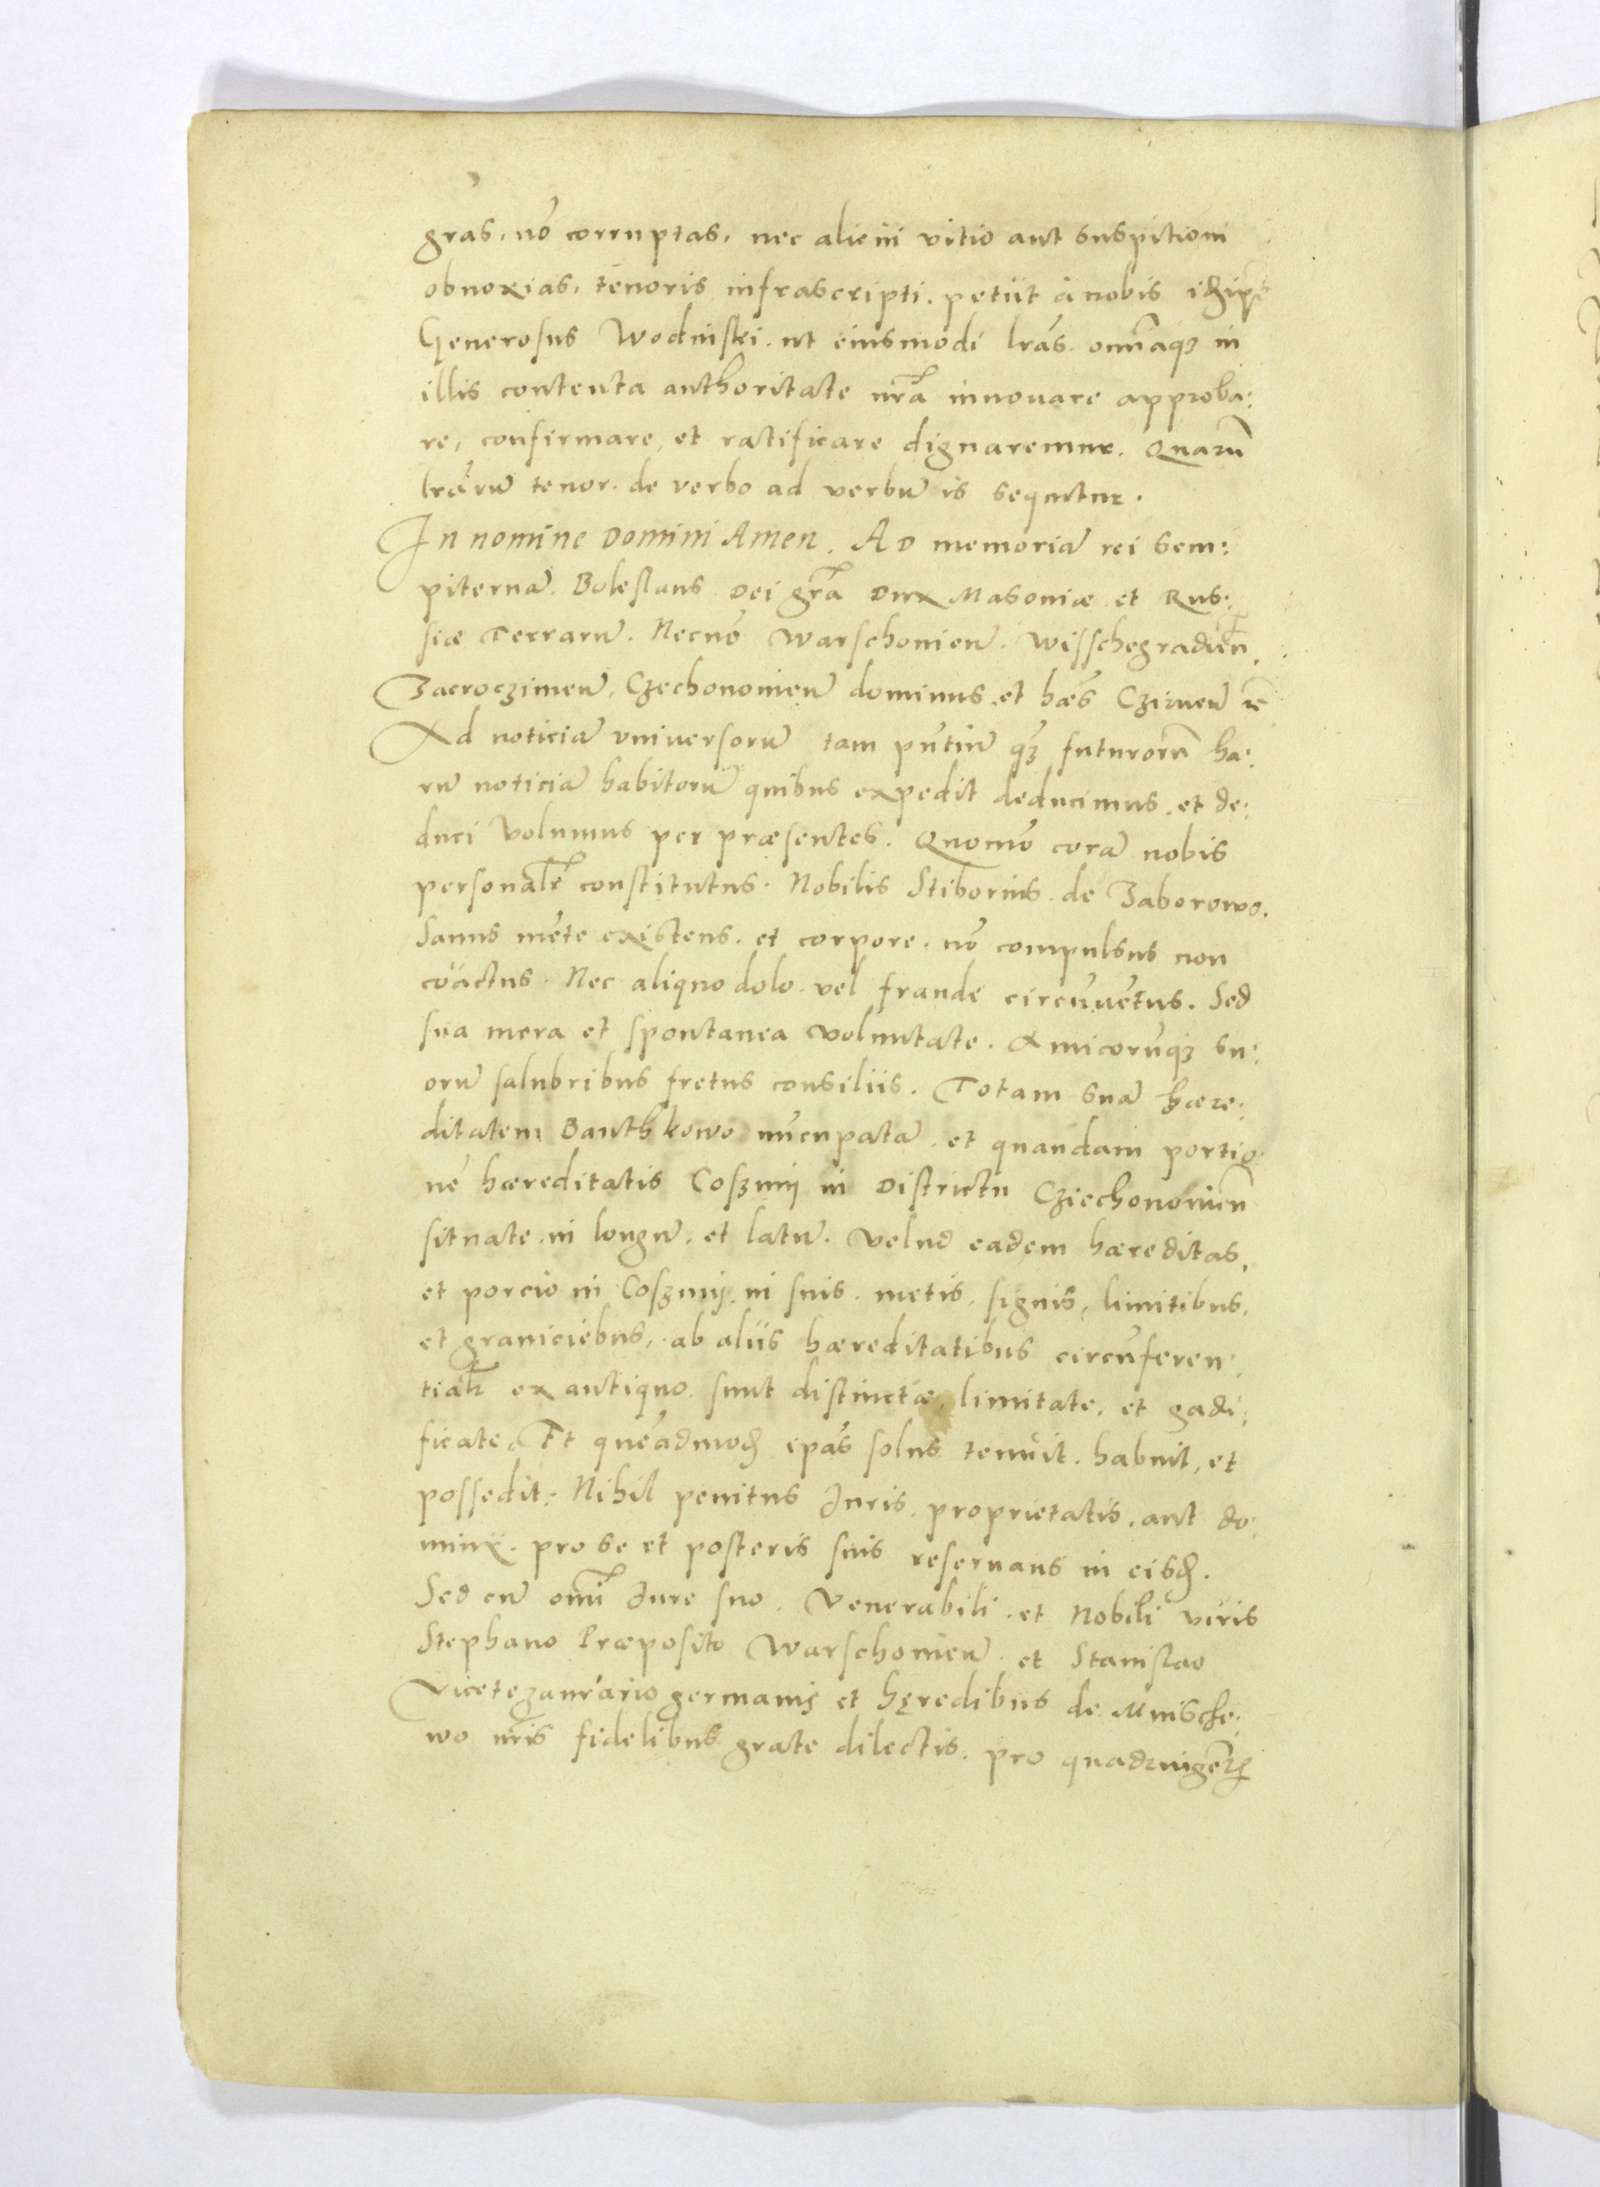 gras, nō corruptas, nec alieni vitio aut suspitioni
obnoxias, tenoris infrascripti. petiit à nobis
Generosus Wodinski. ut eiusmodi lrās. omniaq3 in
illis contenta authoritate nrā innouare approba:
re, confirmare, et ratificare dignaremur. Quarū
lrārū tenor. de verbo ad verbū is sequitur.
In nomine Domini Amen. Ad memoriā rei sem:
piternā. Boleslaus Dei grā Dux Masoniæ et Rus:
siæ Terrarū. Necnō Warschonien̄. Wisschegradien̄,
Zacroczimen̄, Czechonomien̄ dominus et hæs Czirnen̄ rc̄
Ad noticiā vniuersorū tam pn̄tiū q̄3 futurorū ha:
rū noticiā habitorū quibus expedit deducimus, et de:
duci volumus per præsentes. Quomō corā nobis
personalr̄ constitutus. Nobilis Stiborius de Zaborowo.
Sanus mēte existens. et corpore. nō compulsus non
coactus. Nec aliquo dolo vel fraude circūuētus. Sed
sua mera et spontanea voluntate. Amicorūq3 su:
orū salubribus fretus consiliis. Totam suā hære:
ditatem Banthkowo nūcupatā. et quandam portio:
nē hæreditatis Coszmij in Districtu Cziechonorien̄
situate. in longū. et latū. Velud eadem hæreditas,
et porcio in Coszmij. in suis. metis, signis, limitibus,
et graniciebus, ab aliis hæreditatibus circūferen:
tialr̄ ex antiquo sunt distinctæ, limitate, et gadi:
ficate. Et quēadmod̄ ip̄as solus tenuit. habuit, et
possedit: Nihil penitus Juris, proprietatis, aut do:
minij. pro se et posteris suis reseruans in eisd̄.
Sed cū omī Jure suo. Venerabili. et Nobili viris
Stephano Præposito Warschonien̄ et Stanislao
Vicetezaurario germanis et hęredibus de Mnische:
wo nr̄is fidelibus grate dilectis. pro